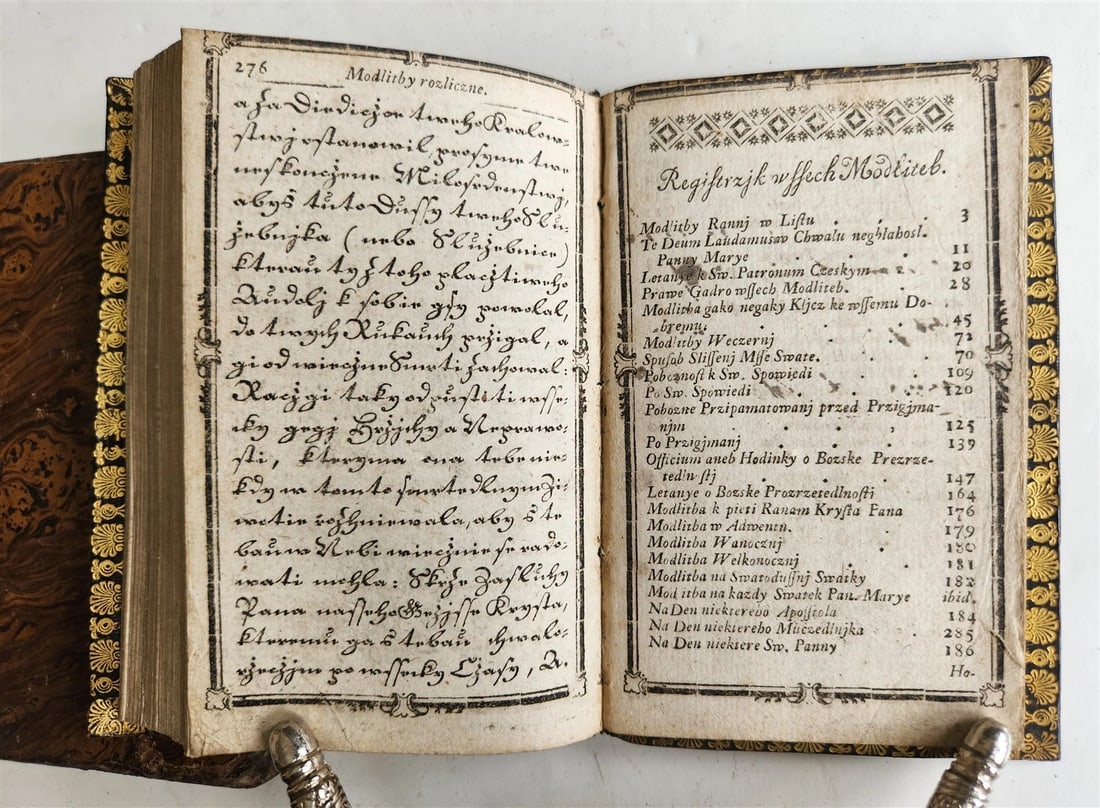 276
Modlitby rozliczne.
a za Diediczor tweho Kralow-
stwj ostanowil, prosyme twe
neskonczene Milosrdenstwj,
abys tuto Dussy tweho Slu-
žebnjka (nebo Služebnice)
kterau tyž toho placztiweho
Audolj k sobie gsy powolal,
do twych Rukauch przigal, a
gi od wieczne Smrti zachowal:
Raczyž gi taky odpustiti wsse-
cky gegj Hržjchy a Neprawo-
sti, kteryma ona tebe nie-
kdy w tomto smrtedlnym Ži-
wotie rozhniewala, aby s te-
bau w Nebi wiecznie se rado-
wati mohla: Skrže Zasluhy
Pana nasseho Gežjsse Krysta,
kteremu ga s tebau chwalo-
rzeczjm po wssecky Czasy, A.
Registrzjk wssech Modliteb.
Modlitby Rannj w Listu . . . 3
Te Deum Laudamus w Chwalu negblahosl.
Panny Marye . . . 11
Letanye k Sw. Patronum Czeskym . . 20
Prawe Gadro wssech Modliteb. . . 28
Modlitba gako negaky Kljcz ke wssemu Do-
bremu. . . . . 45
Modlitby Weczernj . . . 72
Spusob Slissenj Msse Swate. . . . 70
Poboznost k Sw. Spowiedi . . . 109
Po Sw. Spowiedi . . . 120
Pobozne Przipamatowanj przed Przigjma-
njm . . . , 125
Po Przigjmanj . . . . 139
Officium aneb Hodinky o Bozske Prezrze-
tedlnstj . . . . 147
Letanye o Bozske Prozrzetedlnosti . 164
Modlitba k pieti Ranam Krysta Pana 176
Modlitba w Adwentn. . . 179
Modlitba Wanocznj . 180
Modlitba Welkonocznj . . 181
Modlitba na Swatodussnj Swatky . 182
Modlitba na kazdy Swatek Pan. Marye ibid.
Na Den niektereho Apostola . 184
Na Den niektereho Muczedlnjka . 285
Na Den niektere Sw. Panny . 186
Ho-